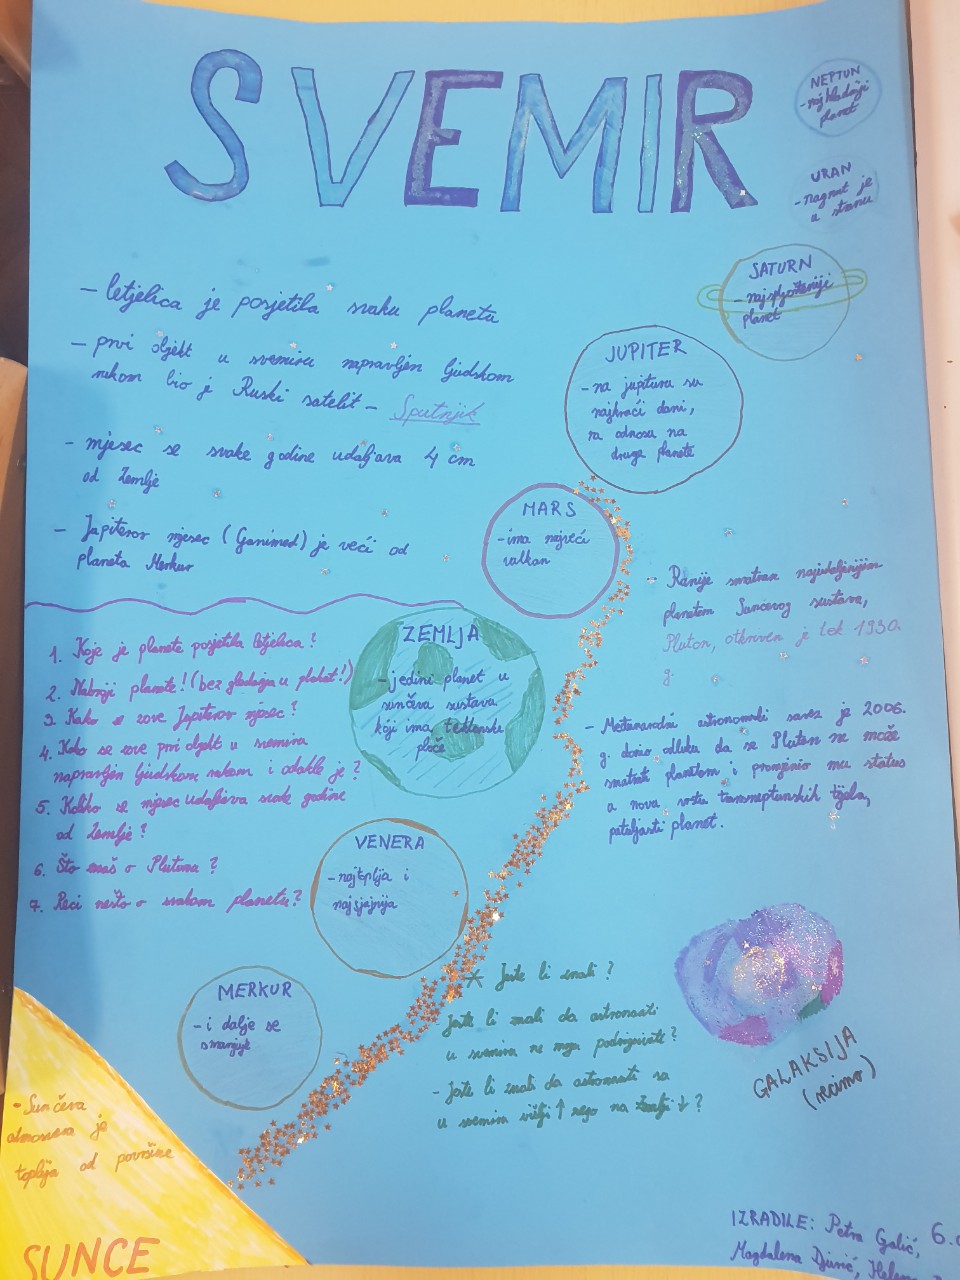 SVEMIR
NEPTUN
- najhladniji
planet
URAN
- nagnut je
u stranu
SATURN
- najspljošteniji
planet
JUPITER
- na jupituru su
najkraći dani,
na odnosu na
druge planete
MARS
- ima najveći
vulkan
ZEMLJA
- jedini planet u
sunčeva sustavu
koji ima tektonske
ploče
VENERA
- najtoplija i
najsjajnija
MERKUR
- i dalje se
smanjuje
- Sunčeva
atmosvera je
toplija od površine
SUNCE
- letjelica je posjetila svaku planetu
- prvi objekt u svemiru napravljen ljudskom
rukom bio je Ruski satelit - Sputnjik
- mjesec se svake godine udaljava 4 cm
od Zemlje
- Jupiterov mjesec (Ganimed) je veći od
planeta Merkur
1. Koje je planete posjetila letjelica?
2. Nabroji planete! (bez gledanja u plakat!)
3. Kako se zove Jupiterov mjesec?
4. Kako se zove prvi objekt u svemiru
napravljen ljudskom rukom i odakle je?
5. Koliko se mjesec udaljava svake godine
od Zemlje?
6. Što znaš o Plutonu?
7. Reci nešto o svakom planetu?
- Ranije smatran najudaljenijim
planetom Sunčevog sustava,
Pluton, otkriven je tek 1930.
g.
- Međunarodni astronomski savez je 2006.
g. donio odluku da se Pluton ne može
smatrati planetom i promjenio mu status
u novu vrstu transneptunskih tijela,
patuljasti planet.
* Jeste li znali?
- Jeste li znali da astronauti
u svemiru ne mogu podrignuti?
- Jeste li znali da astronauti su
u svemiru višlji ↑ nego na Zemlji ↓?
GALAKSIJA
(recimo)
IZRADILE: Petra Galić, 6.
Magdalena Djurić, Helena